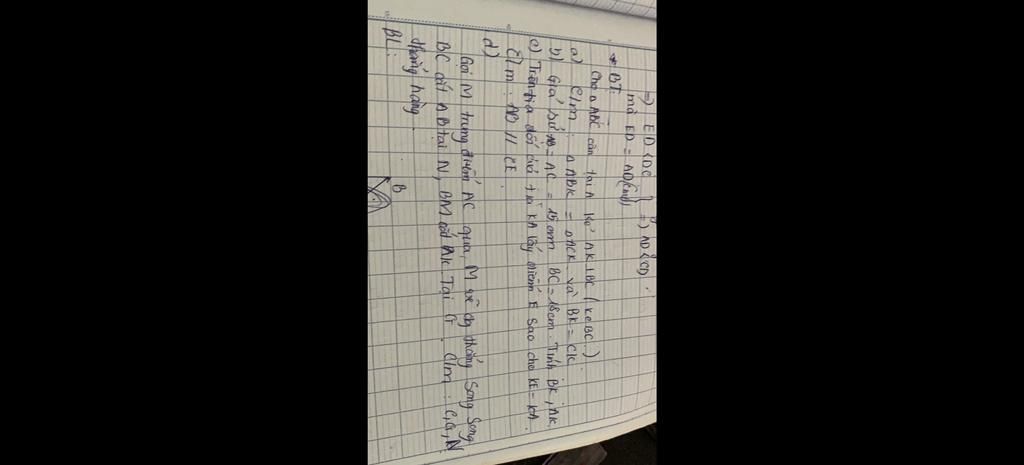 => ED < DC
mà ED = AD (cmt) } => AD < CD.
* BT:
Cho △ABC cân tại A kẻ AK⊥BC (K∈BC.)
a) C/m: △ABK = △ACK và BK = CK
b) Giả sử AB = AC = 15cm BC = 18cm. Tính BK; AK,
c) Trên tia đối của tia KA lấy điểm E sao cho KE = KA.
C/m: AB // CE.
d)
Gọi M trung điểm AC qua, M vẽ đg thẳng Song Song
BC cắt AB tại N, BM cắt AK Tại G. C/m: C, G, N
thẳng hàng
BL:
B